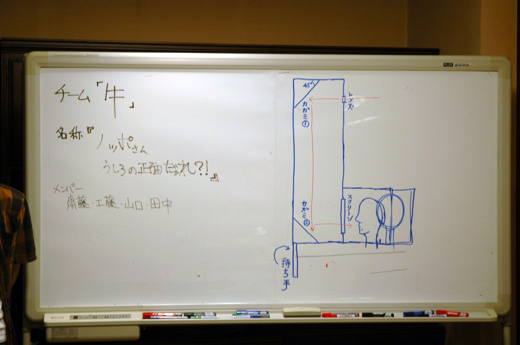 チーム「牛」
名称『ノッポさん
うしろの正面だぁれ?!』
メンバー
齋藤・工藤・山口・田中
45°
カガミ①
レンズ
カガミ②
スクリーン
持ち手